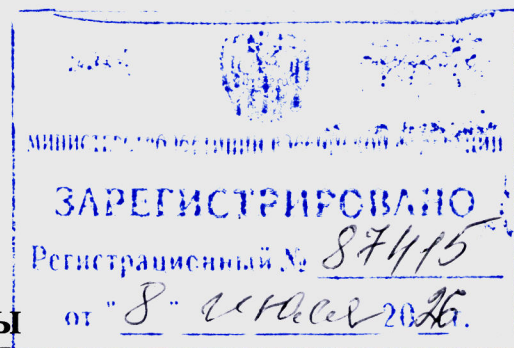 МИНИСТЕРСТВО ЮСТИЦИИ РОССИЙСКОЙ ФЕДЕРАЦИИ
ЗАРЕГИСТРИРОВАНО
Регистрационный № 87415
Ы от "8" июля 2026г.